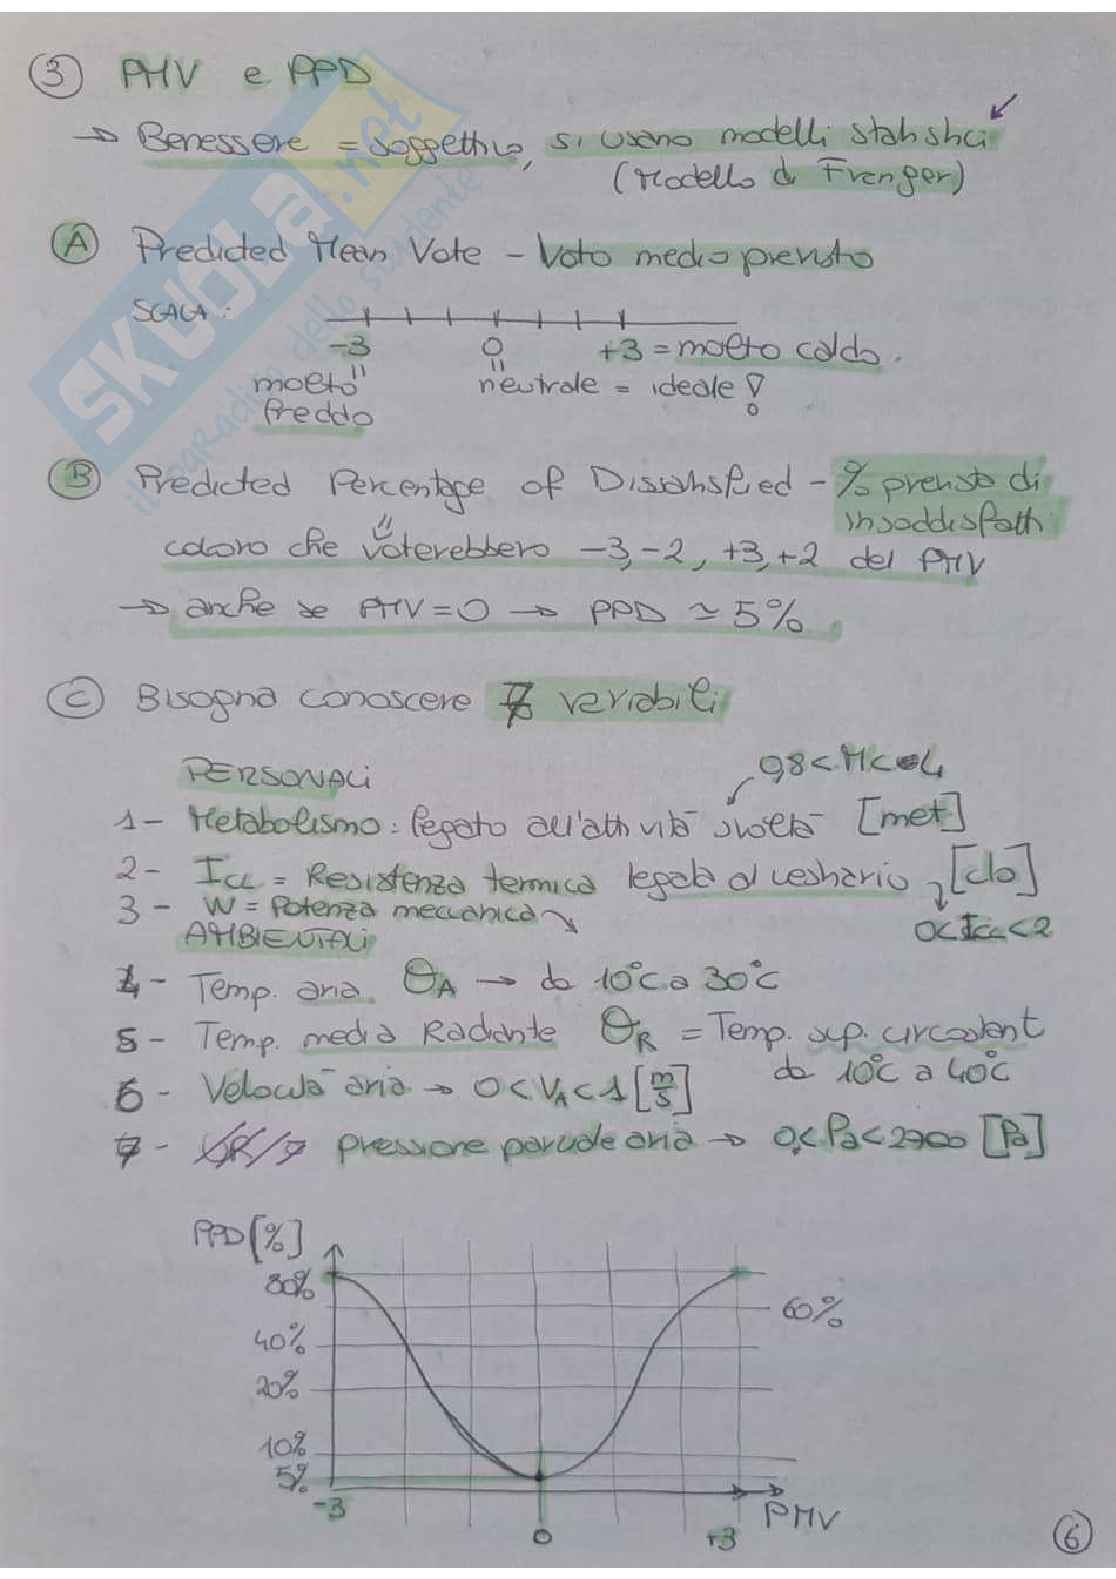 ③ PMV e PPD
→ Benessere = soggettivo, si usano modelli statistici
(Modello di Frenger)
Ⓐ Predicted Mean Vote - Voto medio previsto
SCALA :
-3 0 +3 = molto caldo.
molto neutrale = ideale !
freddo
Ⓑ Predicted Percentage of Dissatisfied - % prevista di
insoddisfatti
coloro che voterebbero -3, -2, +3, +2 del PMV
→ anche se PMV = 0 → PPD ≃ 5%
Ⓒ Bisogna conoscere 7 variabili
PERSONALI
0,8 < M < 4
1 - Metabolismo : legato all'attività svolta [met]
2 - Icl = Resistenza termica legata al vestiario, [clo]
3 - W = Potenza meccanica
0 < Icl < 2
AMBIENTALI
4 - Temp. aria θA → da 10°C a 30°C
5 - Temp. media Radiante θR = Temp. sup. circostanti
da 10°C a 40°C
6 - Velocità aria → 0 < VA < 1 [m/s]
7 - pressione parziale aria → 0 < Pa < 2700 [Pa]
PPD [%]
80%
60%
40%
20%
10%
5%
-3 0 +3 PMV
⑥
SKUOLA.net
il paradiso dello studente